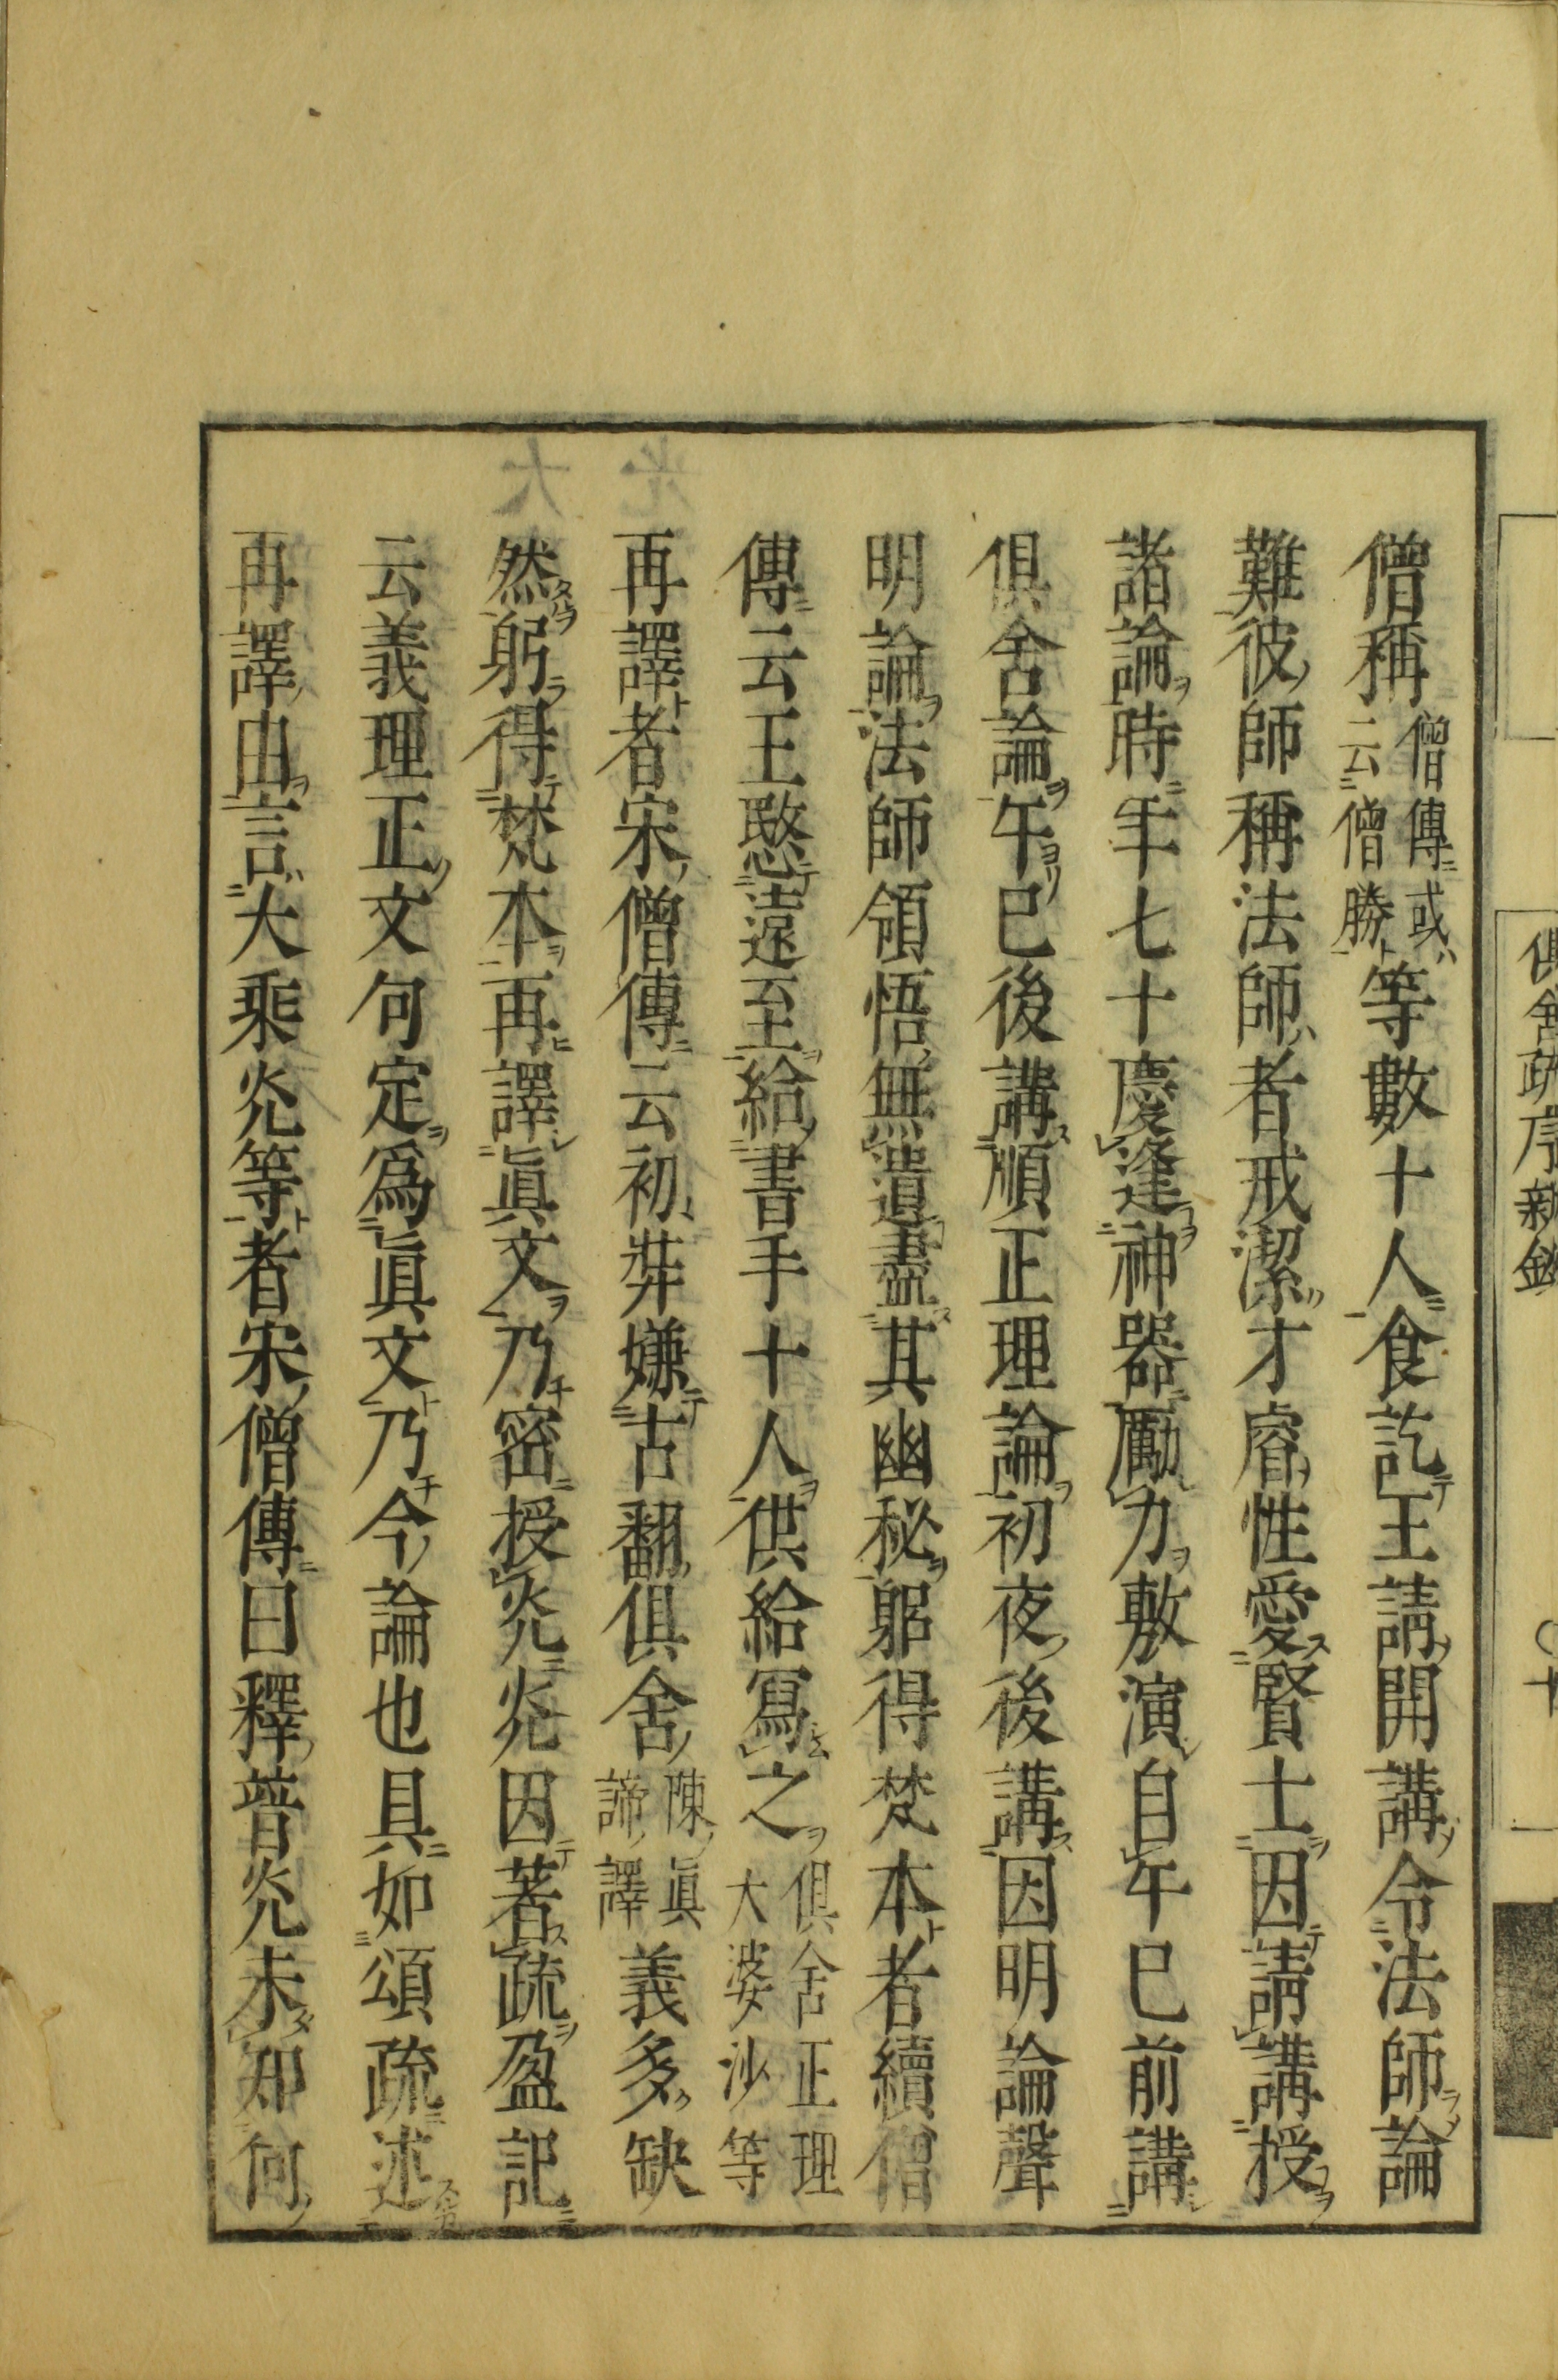 僧稱僧傳或云僧勝等數十人食訖王請開講令法師論
難彼師稱法師者戒潔才睿性愛賢士因請講授
諸論時年七十慶逢神器勵力敷演自午巳前講
俱舍論午巳後講順正理論初夜後講因明論聲
明論法師領悟無遺盡其幽秘躬得梵本者續僧
傳云王愍遠至給書手十人供給寫之俱舍正理大婆沙等
再譯者宋僧傳云初奘嫌古翻俱舍陳眞諦譯義多缺
然躬得梵本再譯眞文乃密授灮灮因著疏盈記
云義理正文句定爲眞文乃今論也具如頌疏述
再譯由言大乘灮等者宋僧傳曰釋普灮未知何
俱舍疏序新鈔
十